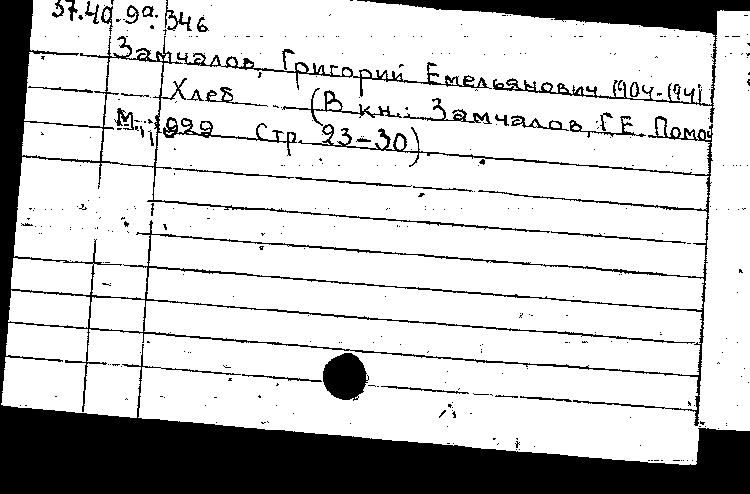 37.40.9а. 346
Замчалов, Григорий Емельянович 1904-1941
Хлеб (В кн.: Замчалов, Г.Е. Помо
М., 1929 Стр. 23-30).